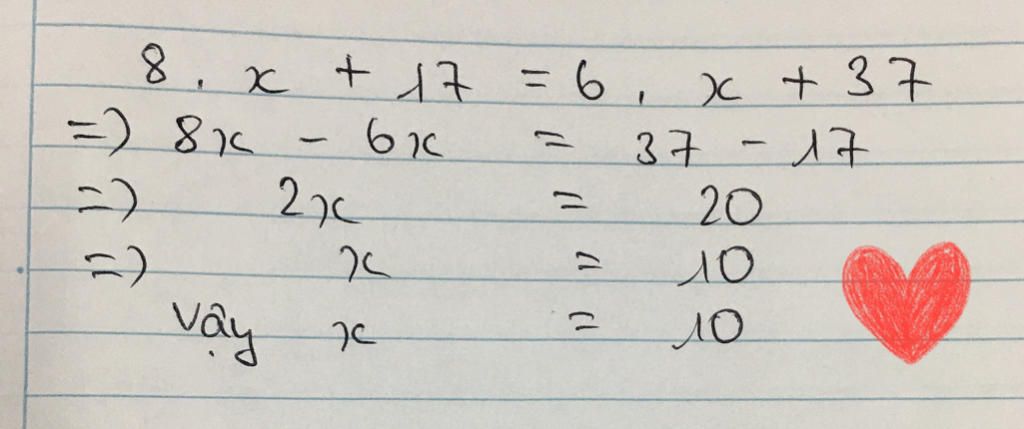 8 . x + 17 = 6 . x + 37
=) 8x - 6x = 37 - 17
=) 2x = 20
=) x = 10
Vậy x = 10